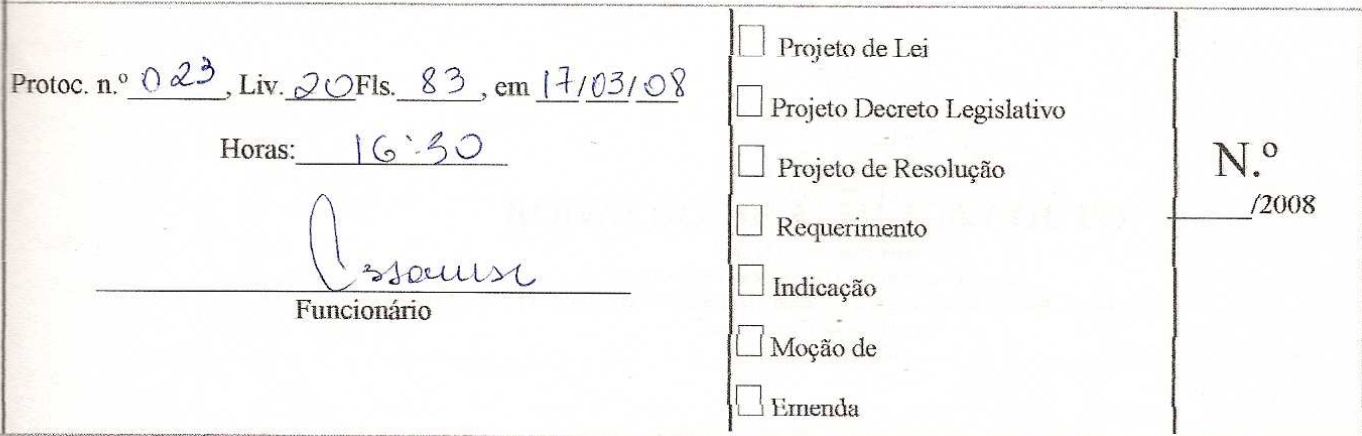 Protoc. n.º 023, Liv. 20 Fls. 83, em 17/03/08
Horas: 16:30
Funcionário
Projeto de Lei
Projeto Decreto Legislativo
Projeto de Resolução
Requerimento
Indicação
Moção de
Emenda
N.º
/2008